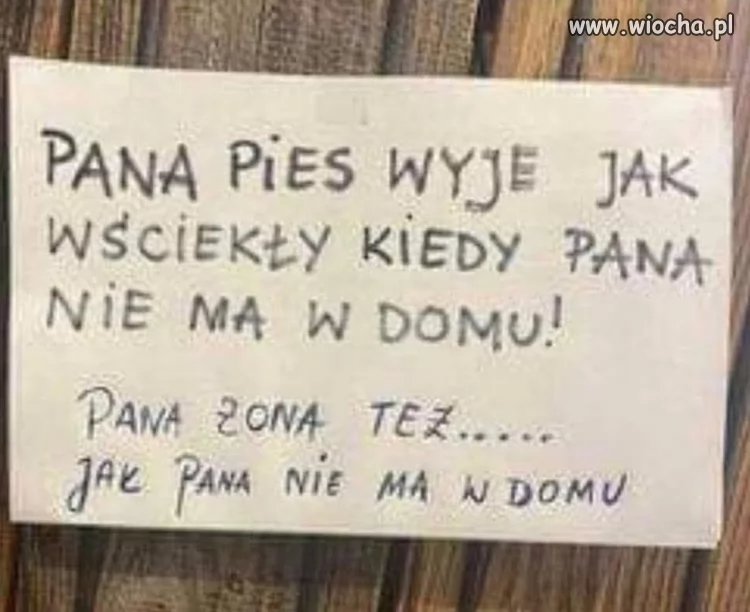 www.wiocha.pl
PANA PiES WYJE JAK
WŚCiEKŁY KiEDY PANA
NiE MA W DOMU!
PANA ŻONA TEŻ.....
JAK PANA NIE MA W DOMU